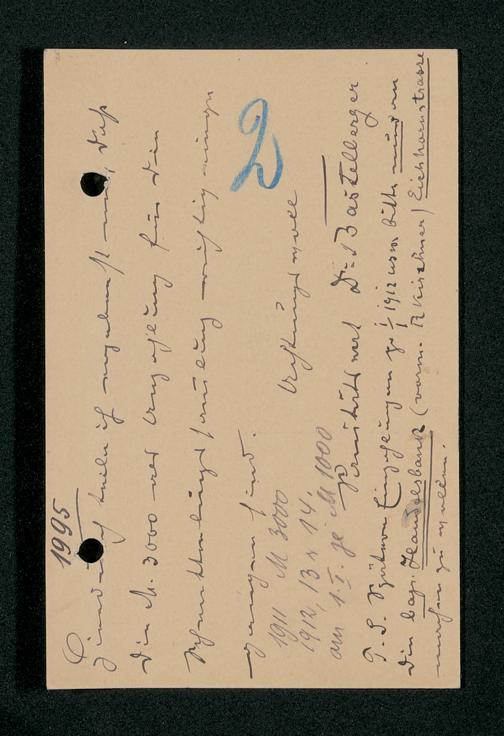 1995
Hiedurch teile ich ergebenst mit, daß
die M. 3000 als Anzahlung für die
Schmetterlingssammlung richtig einge-
gangen sind.
2
Achtungsvoll
1911 M 3000
1912, 13 & 14.
am 1.I. je M 1000
Sanitätsrat Dr. Bastelberger
P.S. Spätere Einzahlungen zu 1/1 1912 usw bitte nur an
die bay. Handelsbank (vorm. R Kirchner) Eichhornstrasse
machen zu wollen.